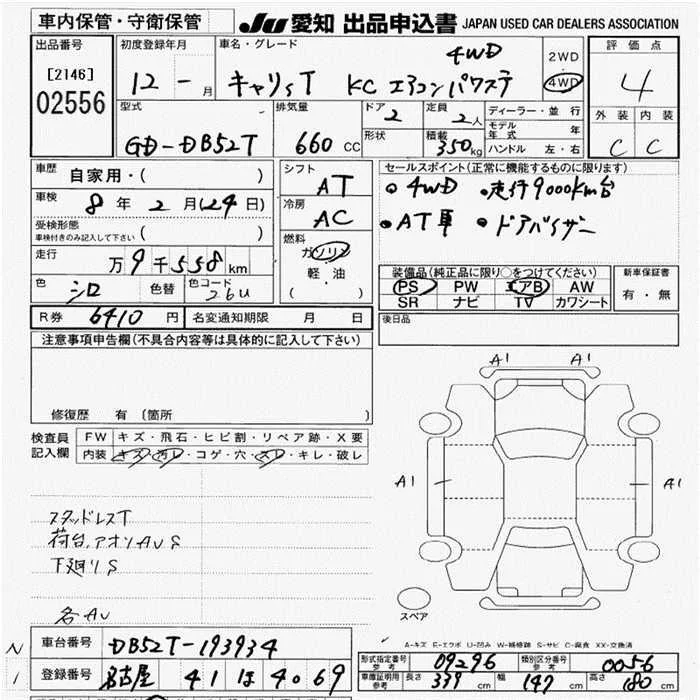 車内保管・守衛保管
JU 愛知 出品申込書 JAPAN USED CAR DEALERS ASSOCIATION
出品番号
[2146]
02556
初度登録年月
12 - 月
車名・グレード
4WD
キャリィT KC エアコンパワステ
2WD
4WD
評価点
4
外装 内装
C C
型式
GD-DB52T
排気量
660 CC
ドア
2
形状
定員
2人
積載
350kg
ディーラー・並行
モデル年式 年
ハンドル 左・右
車歴
自家用・( )
車検
8年 2月(24日)
受検形態
車検付きのみ記入して下さい ( )
走行
万9千558km
色
シロ
色替
色コード
26U
シフト
AT
冷房
AC
燃料
ガソリン
軽・油
( )
セールスポイント(正常に機能するものに限ります)
• 4WD •走行9000km台
• AT車 • ドアバイザー
装備品(純正品に限り○をつけてください)
PS PW エアB AW
SR ナビ TV カワシート
新車保証書
有・無
R券 6410 円 名変通知期限 月 日
後日品
注意事項申告欄(不具合内容等は具体的に記入して下さい)
修復歴 有 (箇所 )
検査員記入欄
FW キズ・飛石・ヒビ割・リペア跡・X要
内装 キズ・汚レ・コゲ・穴・スレ・キレ・破レ
A1 A1
A1 A1
スタッドレスT
荷台、アオリAUS
下廻りS
各AU
スペア
A-キズ E-エクボ U-凹み W-補修跡 S-サビ C-腐食 XX-交換済
N
1
車台番号 DB52T-193934
登録番号 名古屋 41 ほ 4069
形式指定番号 参考 09296 類別区分番号 参考 0056
車庫証明用 参考 長さ 339 cm 幅 147 cm 高さ 180 cm